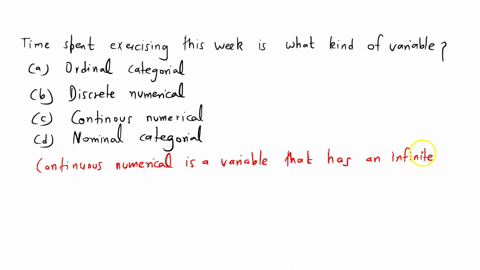 Time spent exercising this week is what kind of variable?
(a) Ordinal categorial
(b) Discrete numerical
(c) Continous numerical
(d) Nominal categorial
Continuous numerical is a variable that has an infinite